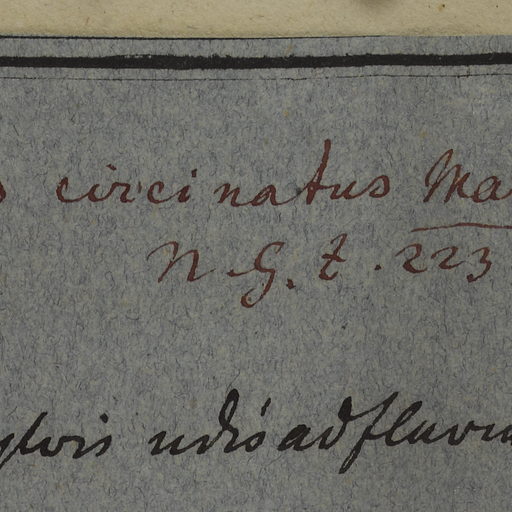 s circinatus Ma
N. G. t. 223
ylvis udis ad fluviu